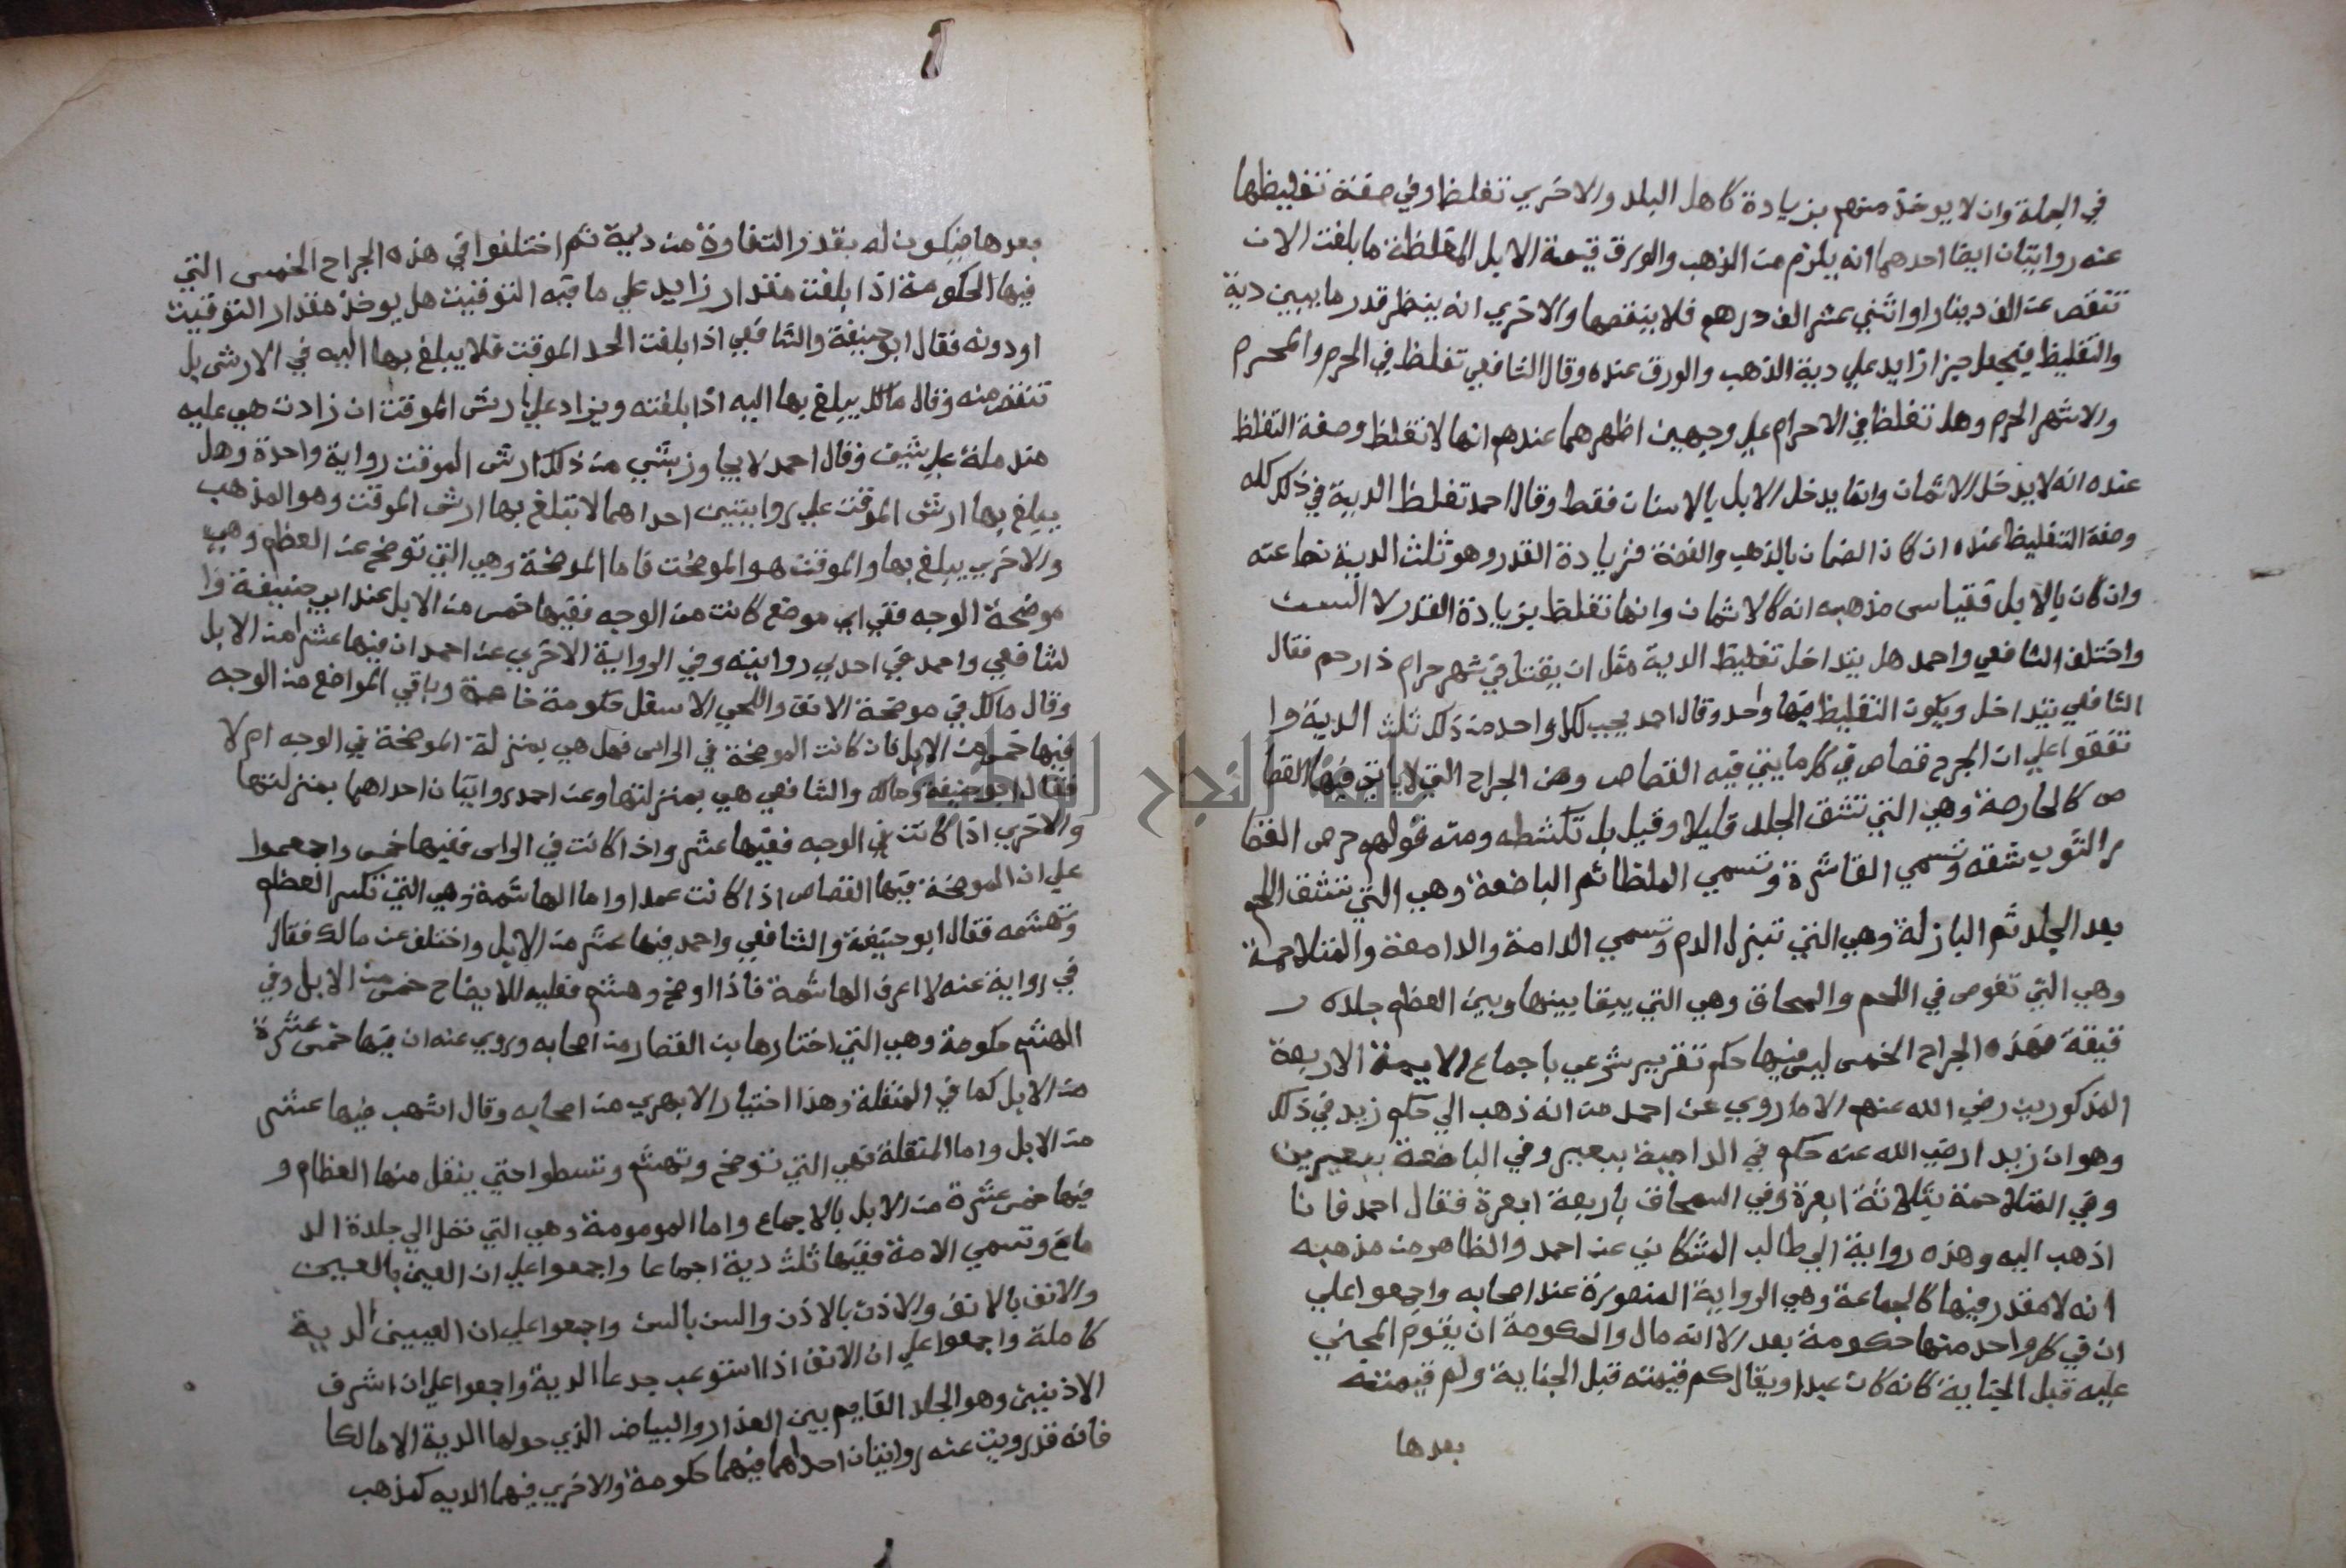 في الجملة وان لا يوخذ منهم بزيادة كاهل البلد والاخري تغلظ وفي صفة تغليظها
عنه روايتان ايضا احدهما انه يلزم من الذهب والورق قيمة الابل المغلظة ما بلغت الا ان
تنقص عن الف دينار او اثني عشر الف درهم فلا ينقصها والاخري انه ينظر قدر ما بين دية
والتغليظ فيجعل جزا زايد علي دية الذهب والورق عنده وقال الشافعي تغلظ في الحرم والمحرم
والاشهر الحرم وهل تغلظ في الاحرام علي وجهين اظهرهما عندهم انها لا تغلظ وصفة التغلظ
عنده انه لا يدخل الاثمان وانما يدخل الابل بالاسنان فقط وقال احمد تغلظ الدية في ذلك كله
وصفة التغليظ عنده ان كان الضمان بالذهب والفضة فزيادة القدر وهو ثلث الدية نصا عنه
وان كان بالابل فقياس مذهبه انه كالاثمان وانها تغلظ بزيادة القدر لا السن
واختلف الشافعي واحمد هل يتداخل تغليظ الدية مثل ان يقتل في شهر حرام ذا رحم فقال
الشافعي يتداخل ويكون التغليظ فيها واحد وقال احمد يجب لكل واحد من ذلك ثلث الدية وا
تفقوا علي ان الجرح قصاص في كل ما يتي فيه القصاص ومن الجراح التي لا ياتي فيها القصا
ص كالحارصة وهي التي تشق الجلد قليلا وقيل بل تكشطه ومنه قولهم حرص القصا
ر الثوب شقه وتسمي القاشرة وتسمي الملظا ثم الباضعة وهي التي تشق اللحم
بعد الجلد ثم البازلة وهي التي تبزل الدم وتسمي الدامة والدامعة والمتلاحمة
وهي التي تغوص في اللحم والسمحاق وهي التي يبقا بينها وبين العظم جلده ر
قيقة فهذه الجراح الخمس ليس فيها حكم تقرير شرعي باجماع الايمة الاربعة
المذكورين رضي الله عنهم الا ما روي عن احمد من انه ذهب الي حكم زيد في ذلك
وهو ان زيد ارضي الله عنه حكم في الداجية ببعير وفي الباضعة ببعيرين
وفي المتلاحمة بثلاثة ابعرة وفي السمحاق باربعة ابعرة فقال احمد فانا
اذهب اليه وهذه رواية ابي طالب المشكاني عن احمد والظاهر من مذهبه
انه لا مقدر فيها كالجماعة وهي الرواية المنصورة عند اصحابه واجمعوا علي
ان في كل واحد منها حكومة بعد الا انه مال والحكومة ان يقوم المجني
عليه قبل الجناية كانه كان عبدا ويقال كم قيمته قبل الجناية ولم قيمته
بعدها
بعدها فيكون له بقدر التفاوة من دية ثم اختلفوا في هذه الجراح الخمس التي
فيها الحكومة اذا بلغت مقدار زايد علي ما فيه التوقيت هل يوخذ مقدار التوقيت
او دونه فقال ابو حنيفة والشافعي اذا بلغت الحد الموقت فلا يبلغ بها اليه في الارش بل
تنقص منه وقال مالك يبلغ بها اليه اذا بلغته ويزاد علي ارش الموقت ان زادت هي عليه
مندملة علي شين وقال احمد لا يجاوز بشي من ذلك ارش الموقت رواية واحدة وهل
يبلغ بها ارش الموقت علي روايتين احداهما لا تبلغ بها ارش الموقت وهو المذهب
والاخري يبلغ بها والموقت هو الموضحت فاما الموضحة وهي التي توضح عن العظم وهي
موضحة الوجه ففي اي موضع كانت من الوجه ففيها خمس من الابل عند ابي حنيفة وا
لشافعي واحمد في احدي روايتيه وفي الرواية الاخري عن احمد ان فيها عشرا من الابل
وقال مالك في موضحة الانف واللحي الاسفل حكومة خاصة وباقي المواضع من الوجه
فيها خمس من الابل فان كانت الموضحة في الراس فهل هي بمنزلة الموضحة في الوجه ام لا
فقال ابو حنيفة ومالك والشافعي هي بمنزلتها وعن احمد روايتان احداهما بمنزلتها
والاخري اذا كانت في الوجه ففيها عشر واذا كانت في الراس ففيها خمس واجمعوا
علي ان الموضحة فيها القصاص اذا كانت عمدا واما الهاشمة وهي التي تكسر العظم
وتهشمه فقال ابو حنيفة والشافعي واحمد فيها عشر من الابل واختلف عن مالك فقال
في رواية عنه لا اعرف الهاشمة فاذا اوضح وهشم فعليه للايضاح خمس من الابل وفي
الهشم حكومة وهي التي اختارها بن القصار من اصحابه وروي عنه ان فيها خمس عشرة
من الابل كما في المنقلة وهذا اختيار الابهري من اصحابه وقال اشهب فيها عشر
من الابل واما المنقلة فهي التي توضح وتهشم وتسطوا حتي ينقل منها العظام و
فيها خمس عشرة من الابل بالاجماع واما المومومة وهي التي تخل الي جلدة الد
ماغ وتسمي الامة ففيها ثلث دية اجماعا واجمعوا علي ان العين بالعين
والانف بالانف والاذن بالاذن والسن بالسن واجمعوا علي ان العينين الدية
كاملة واجمعوا علي ان الانف اذا استوعب جدعا الدية واجمعوا علي ان اشرف
الاذنين وهو الجلد القايم بين العذار والبياض الذي حولها الدية الا مالكا
فانه قد رويت عنه روايتان احداهما فيهما حكومة والاخري فيهما الديه كمذهب